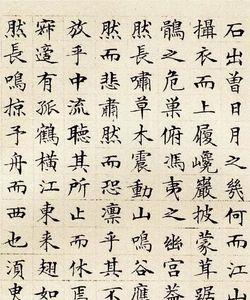 石出曾日月之幾何而江山
攝衣而上履巉巖披蒙茸踞
鶻之危巢俯馮夷之幽宮蓋
然長嘯草木震動山鳴谷應
然而悲肅然而恐凜乎其不
放乎中流聽其所止而休焉
寂寥有孤鶴橫江東來翅如
然長鳴掠予舟而西也須臾